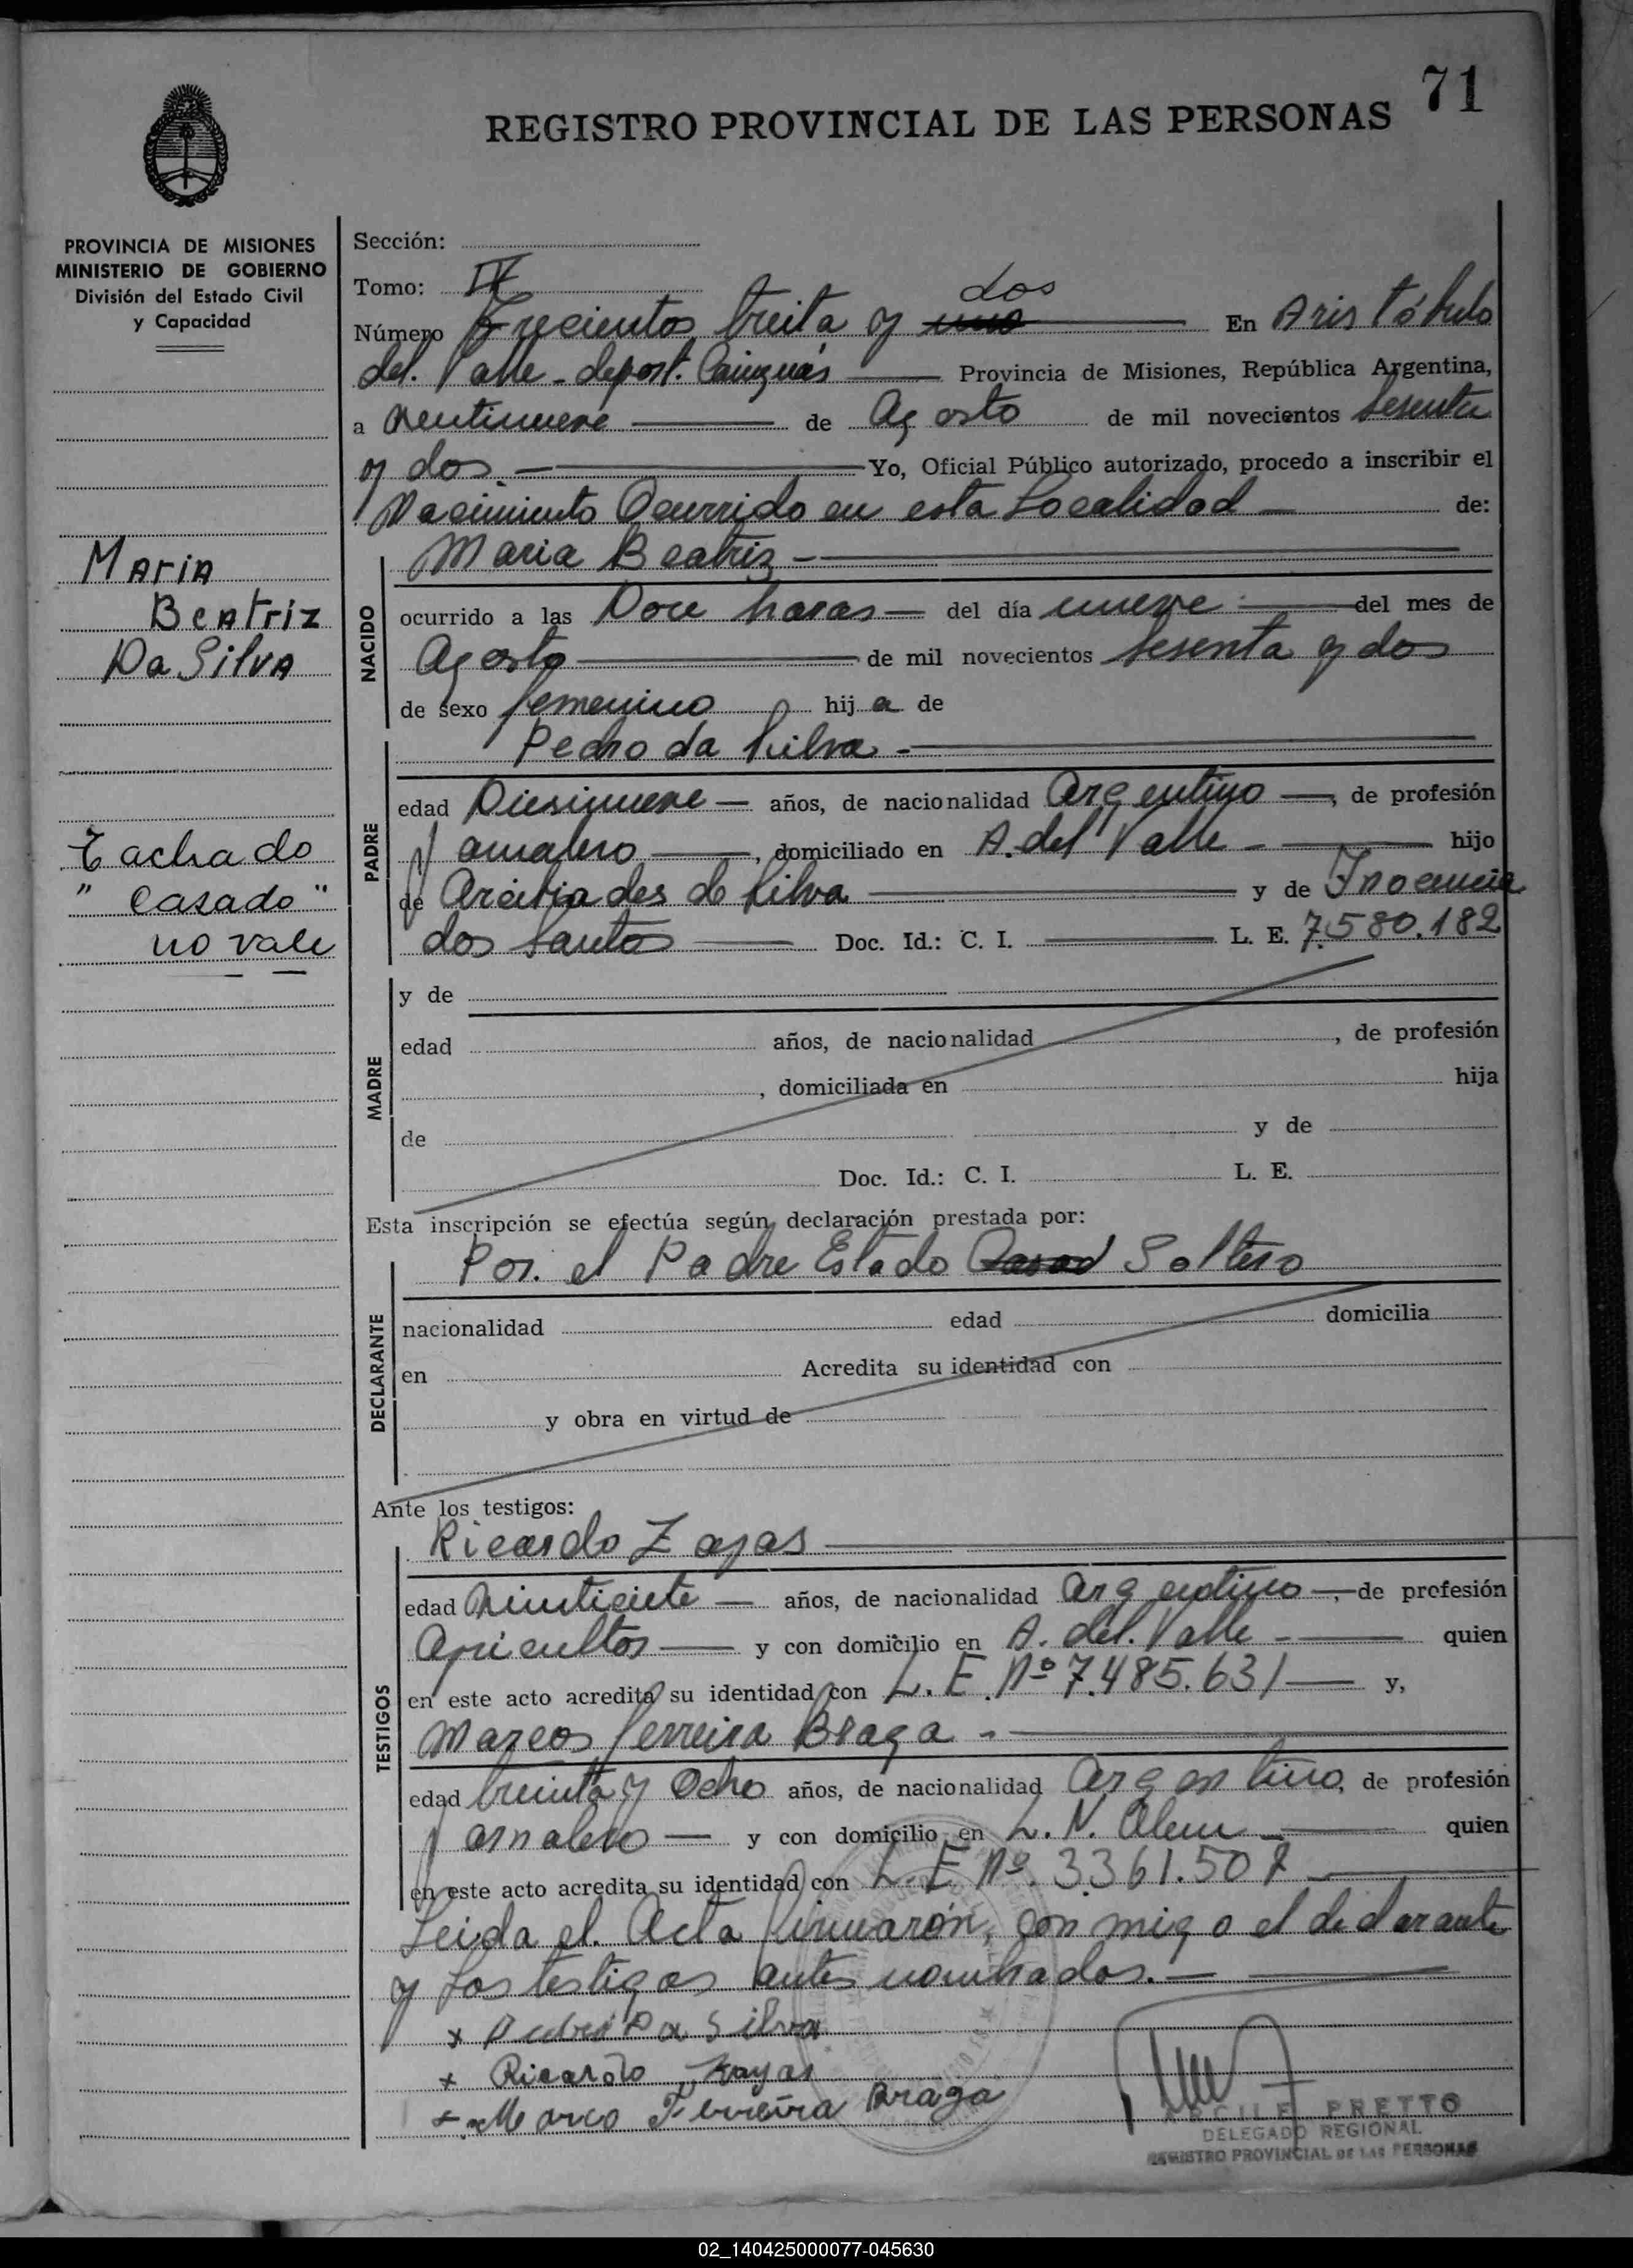 71
REGISTRO PROVINCIAL DE LAS PERSONAS
PROVINCIA DE MISIONES
MINISTERIO DE GOBIERNO
División del Estado Civil
y Capacidad
Maria
Beatriz
Da Silva
Tachado
"Casado"
no vale
Sección:
Tomo: IV
dos
Número Trecientos treita y uno En Aristóbulo
del Valle - depart. Cainguás Provincia de Misiones, República Argentina,
a ventinueve de Agosto de mil novecientos sesenta
y dos. Yo, Oficial Público autorizado, procedo a inscribir el
Nacimiento Ocurrido en esta Localidad de:
NACIDO
Maria Beatriz
ocurrido a las Doce horas del día nueve del mes de
Agosto de mil novecientos sesenta y dos
de sexo femenino hij a de
PADRE
Pedro da Silva
edad Diesinueve años, de nacionalidad Argentino, de profesión
Jornalero, domiciliado en A. del Valle hijo
de da Silva y de Inocencia
dos Santos Doc. Id.: C. I. L. E. 7.580.182
MADRE
y de
edad años, de nacionalidad , de profesión
, domiciliada en hija
de y de
Doc. Id.: C. I. L. E.
Esta inscripción se efectúa según declaración prestada por:
Por. el Padre Estado Casad Soltero
DECLARANTE
nacionalidad edad domicilia
en Acredita su identidad con
y obra en virtud de
Ante los testigos:
TESTIGOS
Ricardo Zayas
edad años, de nacionalidad Argentino, de profesión
Agricultor y con domicilio en A. del. Valle quien
en este acto acredita su identidad con L. E. Nº 7.485.631 y,
Marcos Ferreira Braga
edad treinta y Ocho años, de nacionalidad Argentino, de profesión
Jornalero y con domicilio en L. N. Alem quien
en este acto acredita su identidad con L. E Nº. 3.361.507
Leida el. Acta firmarón, con migo el declarante
y los testigos antes nombrados.
x Pedro Da Silva
x Ricardo Zayas
x Marco Ferreira Braga
ARCILE PRETTO
DELEGADO REGIONAL
REGISTRO PROVINCIAL DE LAS PERSONAS
02_140425000077-045630